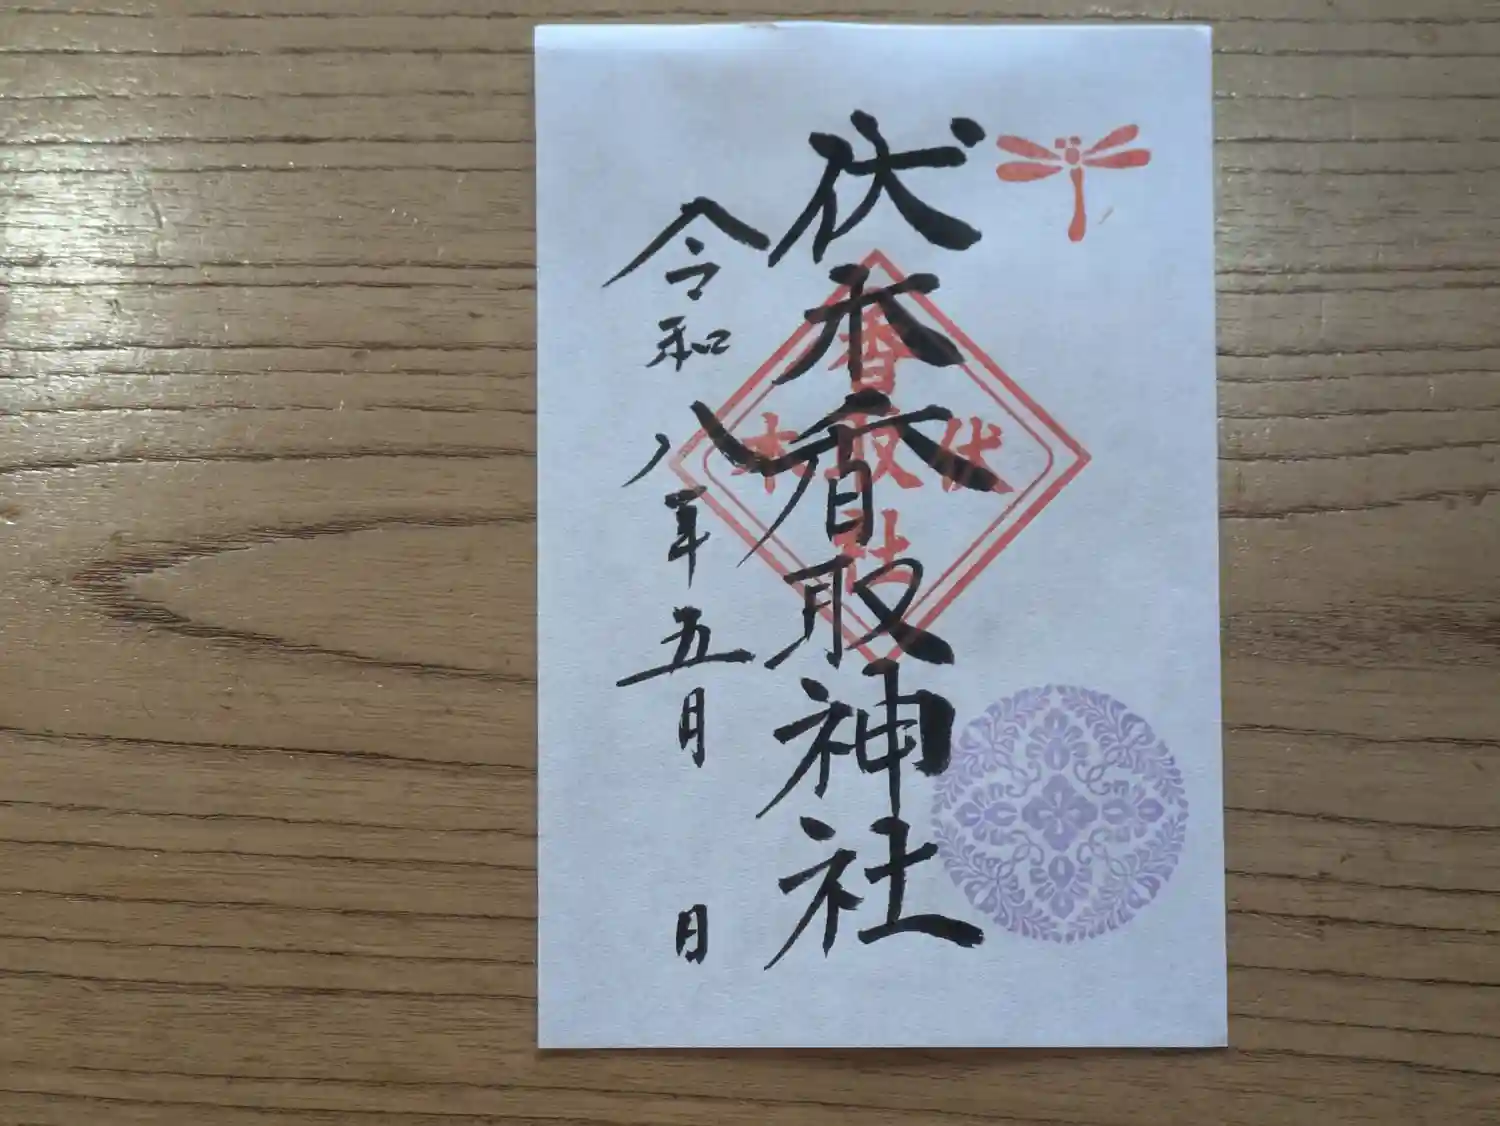 伏木香取神社
伏木
香取社
令和八年五月 日